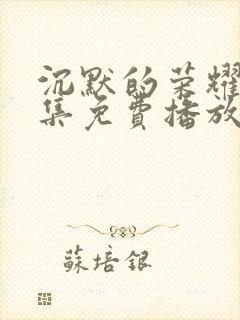 沉默的荣耀
集免費播放
蘇培銀